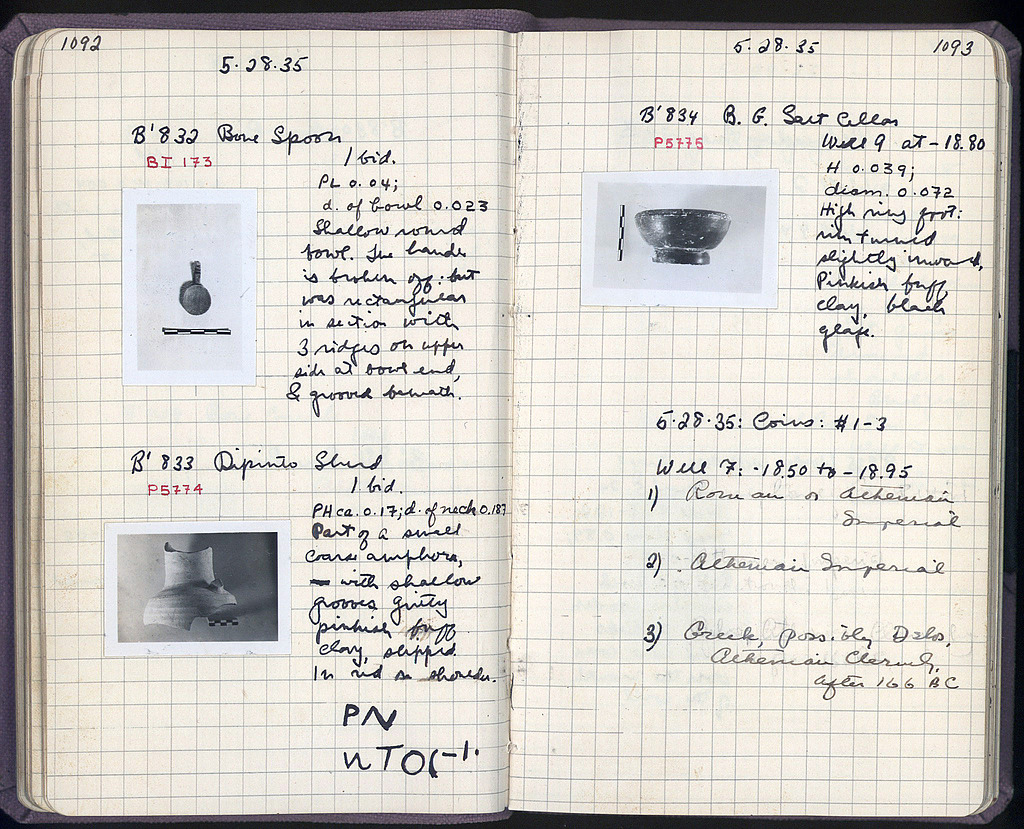 1092
5·28·35
B'832 Bone Spoon
BI 173
1 bid.
PL 0.04;
d. of bowl 0.023
Shallow round
bowl. The handle
is broken off: but
was rectangular
in section with
3 ridges on upper
side at bowl end,
& grooved beneath.
B'833 Dipinto Sherd
P5774
1 bid.
PH ca. 0.17; d. of neck 0.187
Part of a small
coarse amphora,
with shallow
grooves gritty
pinkish buff
clay, slipped.
In red on shoulder.
PN
5·28·35
1093
B'834 B. G. Salt Cellar
P5775
Well 9 at -18.80
H 0.039;
diam. 0.072
High ring foot:
rim turned
slightly inward,
Pinkish buff
clay, black
glaze.
5·28·35: Coins: #1-3
Well 7: -18.50 to -18.95
1) Roman or Athenian
Imperial
2) Athenian Imperial
3) Greek, possibly Delos,
Athenian Cleruchy,
after 166 BC